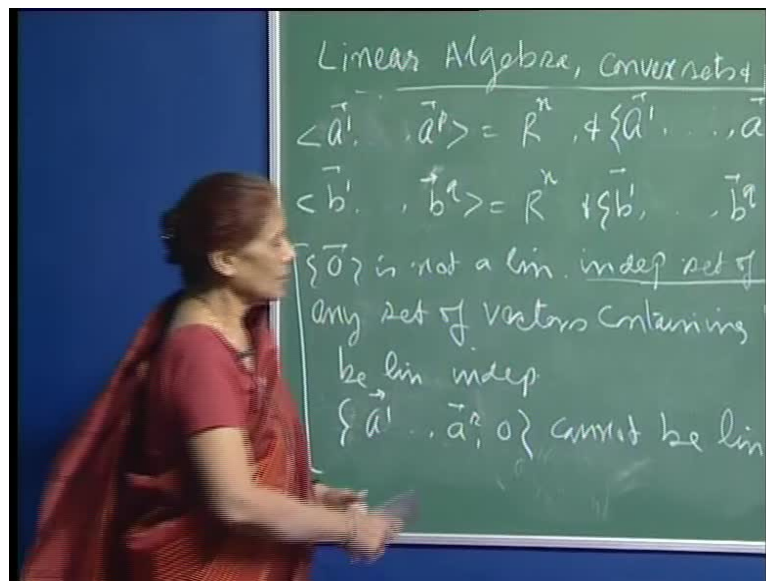 Linear Algebra, Convex sets &
<a⃗¹. . a⃗ᵖ> = Rⁿ, & {a⃗¹. . . ., a⃗
<b⃗¹. . , b⃗^q> = Rⁿ & {b⃗¹, . . , b⃗^q
{0⃗} is not a lin. indep set of
any set of vectors containing
be lin indep
{a⃗¹ . . , a⃗², 0} cannot be lin